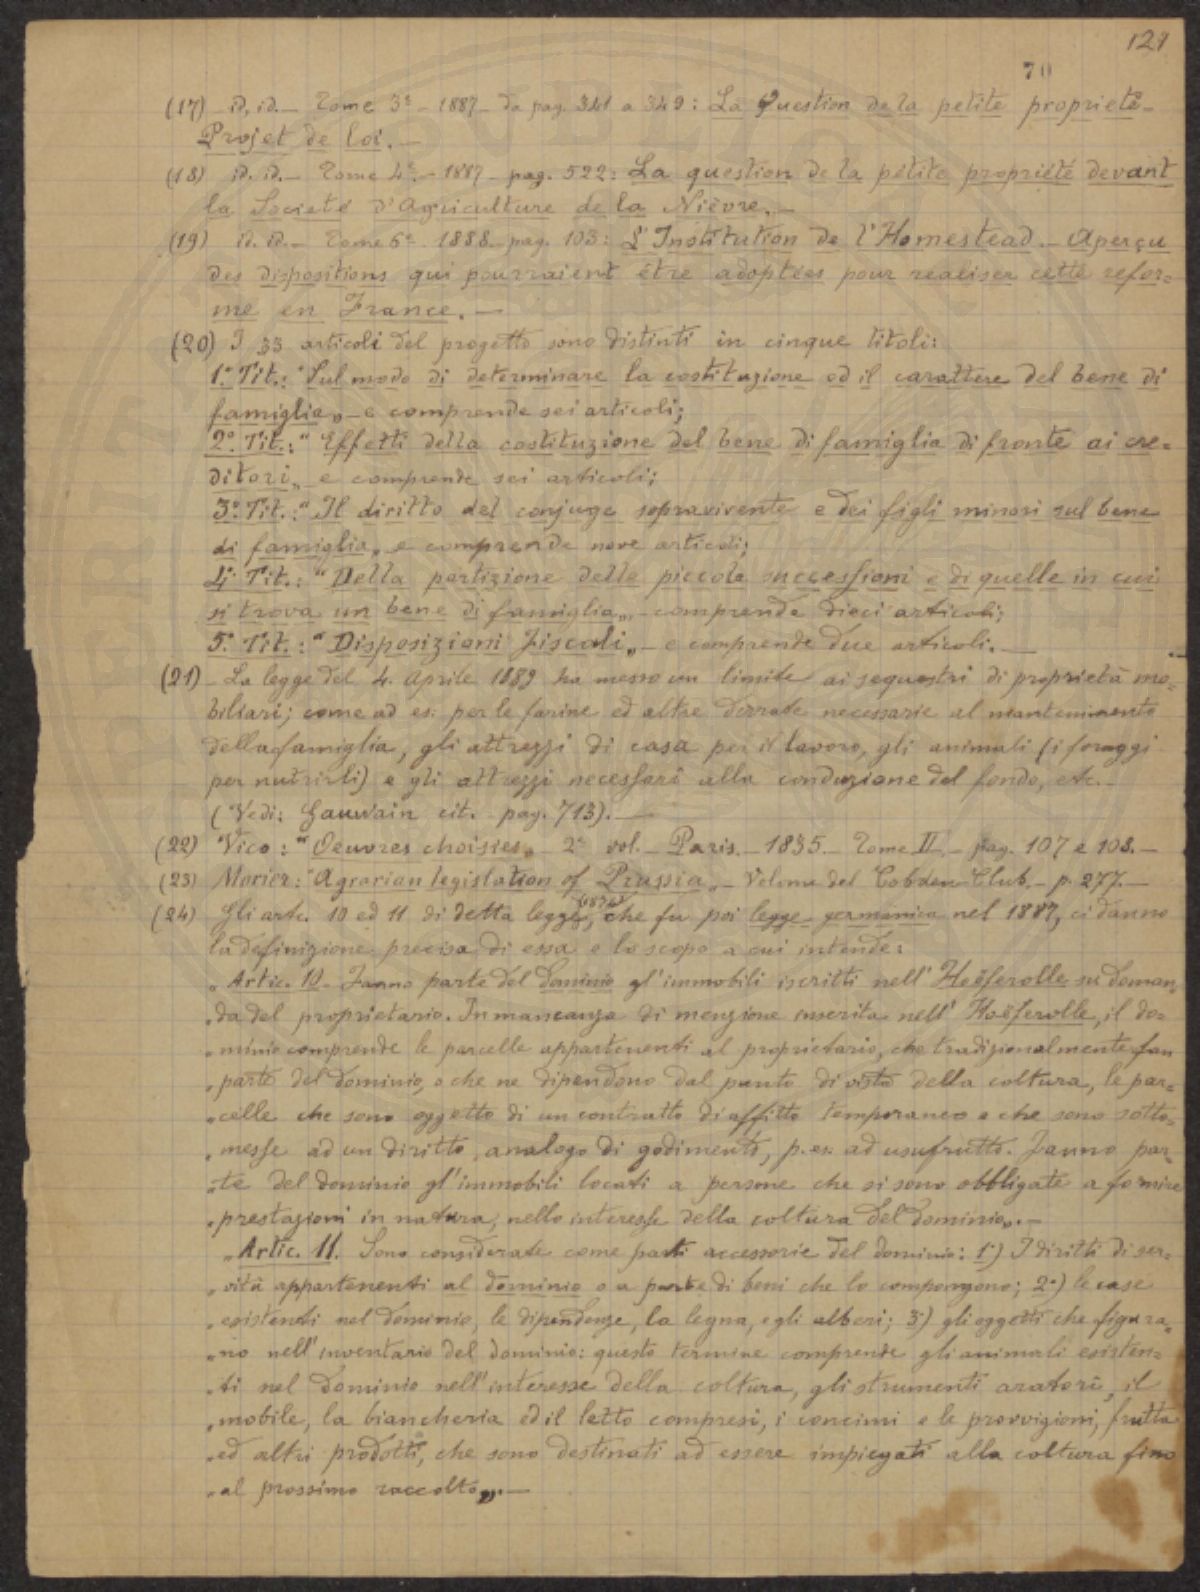 121
70
(17) - id. id. - Tome 3e - 1887 - da pag. 341 a 349: La Question de la petite propriété -
Projet de loi. -
(18) id. id. - Tome 4e - 1887 - pag. 522: La question de la pétite propriété devant
la Societé d'Agriculture de la Nièvre. -
(19) id. id. - Tome 6e 1888 - pag. 103: L'Institution de l'Homestead - Aperçu
des dispositions qui pourraient être adoptées pour realiser cette refor=
me en France. -
(20) I 33 articoli del progetto sono distinti in cinque titoli:
1.° Tit.: "Sul modo di determinare la costituzione ed il carattere del bene di
famiglia" - e comprende sei articoli;
2.° Tit.: "Effetti della costituzione del bene di famiglia di fronte ai cre=
ditori" e comprende sei articoli;
3.° Tit.: "Il diritto del conjuge sopravivente e dei figli minori sul bene
di famiglia" e comprende nove articoli;
4.° Tit.: "Della partizione delle piccole successioni e di quelle in cui
si trova un bene di famiglia" - comprende dieci articoli;
5.° Tit.: "Disposizioni fiscali" - e comprende due articoli. -
(21) - La legge del 4. Aprile 1889 ha messo un limite ai sequestri di proprietà mo=
biliari; come ad es: per le farine ed altre derrate necessarie al mantenimento
della famiglia, gli attrezzi di casa per il lavoro, gli animali (i foraggi
per nutrirli) e gli attrezzi necessari alla conduzione del fondo, etc. -
(Vedi: Gauwain cit. pag. 713). -
(22) Vico: "Oeuvres choisies" - 2e vol. - Paris. - 1835. - Tome II. - pag. 107 e 108. -
(23) Morier: "Agrarian legislation of Prussia" - Volume del Cobden Club. - p. 277. -
(24) Gli artc. 10 ed 11 di detta legge (1874), che fu poi legge germanica nel 1887, ci danno
la definizione precisa di essa e lo scopo a cui intende:
"Artic. 10. Fanno parte del dominio gl'immobili iscritti nell'Hoëferolle su doman=
"da del proprietario. In mancanza di menzione inserita nell'Hoëferolle, il do=
"minio comprende le parcelle appartenenti al proprietario, che tradizionalmente fan
"parte del dominio, o che ne dipendono dal punto di vista della coltura, le par=
"celle che sono oggetto di un contratto di affitto temporaneo e che sono sotto=
"messe ad un diritto, analogo di godimento, p. es. ad usufrutto. Fanno par=
"te del dominio gl'immobili locati a persone che si sono obbligate a fornire
"prestazioni in natura, nello interesse della coltura del dominio". -
"Artic. 11. Sono considerate come parti accessorie del dominio: 1°) I diritti di ser=
"vitù appartenenti al dominio o a parte di beni che lo compongono; 2°) le case
"esistenti nel dominio, le dipendenze, la legna, e gli alberi; 3°) gli oggetti che figura=
"no nell'inventario del dominio: questo termine comprende gli animali esisten=
"ti nel dominio nell'interesse della coltura, gli strumenti aratori, il
"mobile, la biancheria ed il letto compresi, i concimi e le provvigioni, frutta
"ed altri prodotti, che sono destinati ad essere impiegati alla coltura fino
"al prossimo raccolto". -